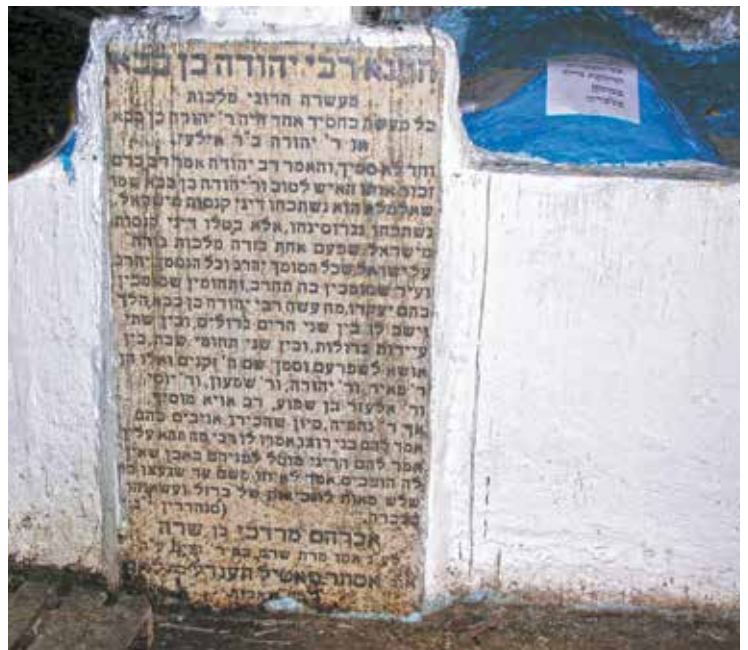 התנא רבי יהודה בן בבא
מעשרה הרוגי מלכות
כל מעשת בחסיד אחד היה ר' יהודה בן בבא
או ר' יהודה ב"ר אילעי.
וחד לא סמיך, והאמר רב יהודה אמר רב ברם
זכור אותו האיש לטוב ור' יהודה בן בבא שמו
שאלמלא הוא נשתכחו דיני קנסות מישראל,
נשתכחו נגרוסינהו, אלא בטלו דיני קנסות
מישראל, שפעם אחת גזרה מלכות גזרה
על ישראל, שכל הסומך יהרג וכל הנסמך יהרג
ועיר שסומכין בה תחרב, ותחומין שסומכין
בהם יעקרו, מה עשה רבי יהודה בן בבא הלך
וישב לו בין שני הרים גדולים, ובין שתי
עיירות גדולות, ובין שני תחומי שבת, בין
אושא לשפרעם וסמך שם ה' זקנים ואלו הן
ר' מאיר, ור' יהודה, ור' שמעון, ור' יוסי,
ור' אלעזר בן שמוע, רב אויא מוסיף
אף ר' נחמיה, כיון שהכירו אויבים בהם
אמר להם בני רוצו, אמרו לו רבי מה תהא עליך
אמר להם הריני מוטל לפניהם כאבן שאין
לה הופכים, אמרו לא זזו משם עד שנעצו בו
שלש מאות לונביאות של ברזל ועשאוהו
ככברה. (סנהדרין
אברהם מרדכי בן שרה
אמו מרת שרה
אסתר